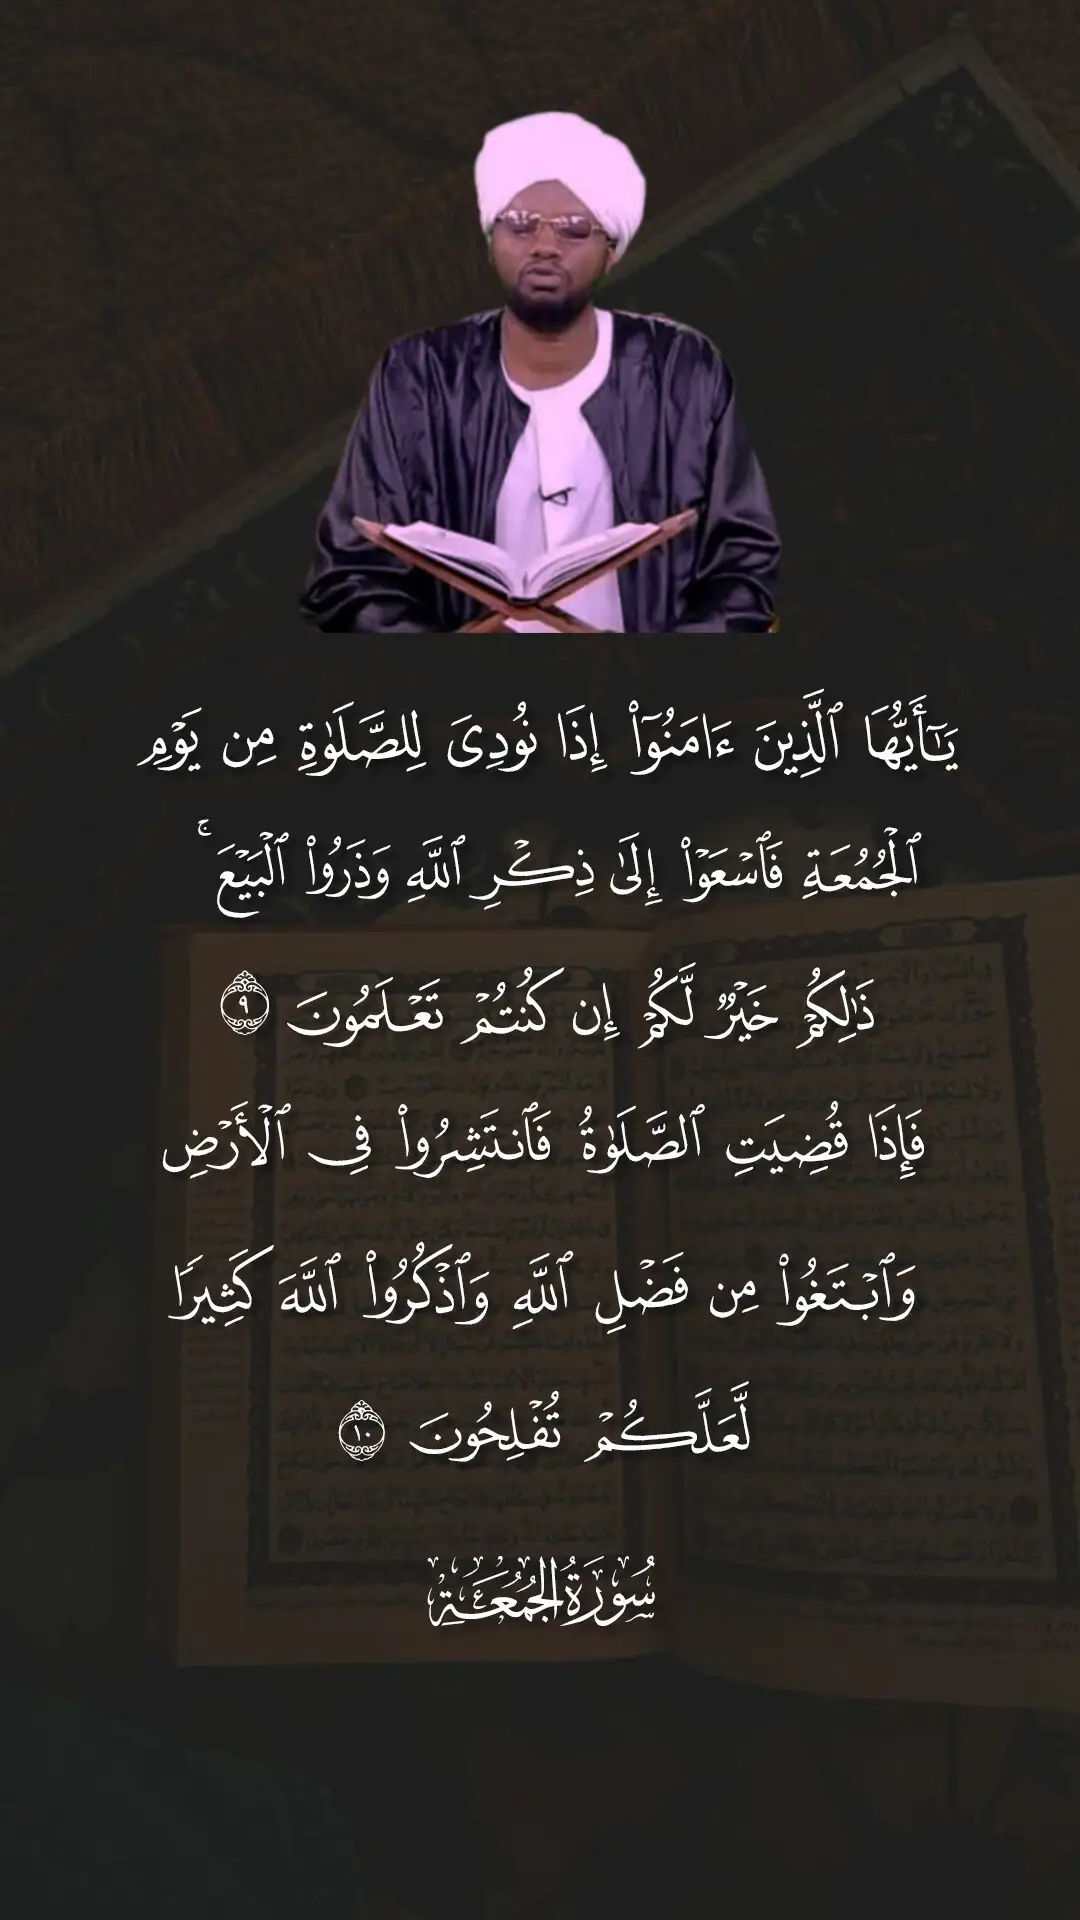 يَـٰٓأَيُّهَا ٱلَّذِينَ ءَامَنُوٓا۟ إِذَا نُودِىَ لِلصَّلَوٰةِ مِن يَوْمِ
ٱلْجُمُعَةِ فَٱسْعَوْا۟ إِلَىٰ ذِكْرِ ٱللَّهِ وَذَرُوا۟ ٱلْبَيْعَ ۚ
ذَٰلِكُمْ خَيْرٌ لَّكُمْ إِن كُنتُمْ تَعْلَمُونَ ٩
فَإِذَا قُضِيَتِ ٱلصَّلَوٰةُ فَٱنتَشِرُوا۟ فِى ٱلْأَرْضِ
وَٱبْتَغُوا۟ مِن فَضْلِ ٱللَّهِ وَٱذْكُرُوا۟ ٱللَّهَ كَثِيرًا
لَّعَلَّكُمْ تُفْلِحُونَ ١٠
سُورَةُ الجُمُعَةِ